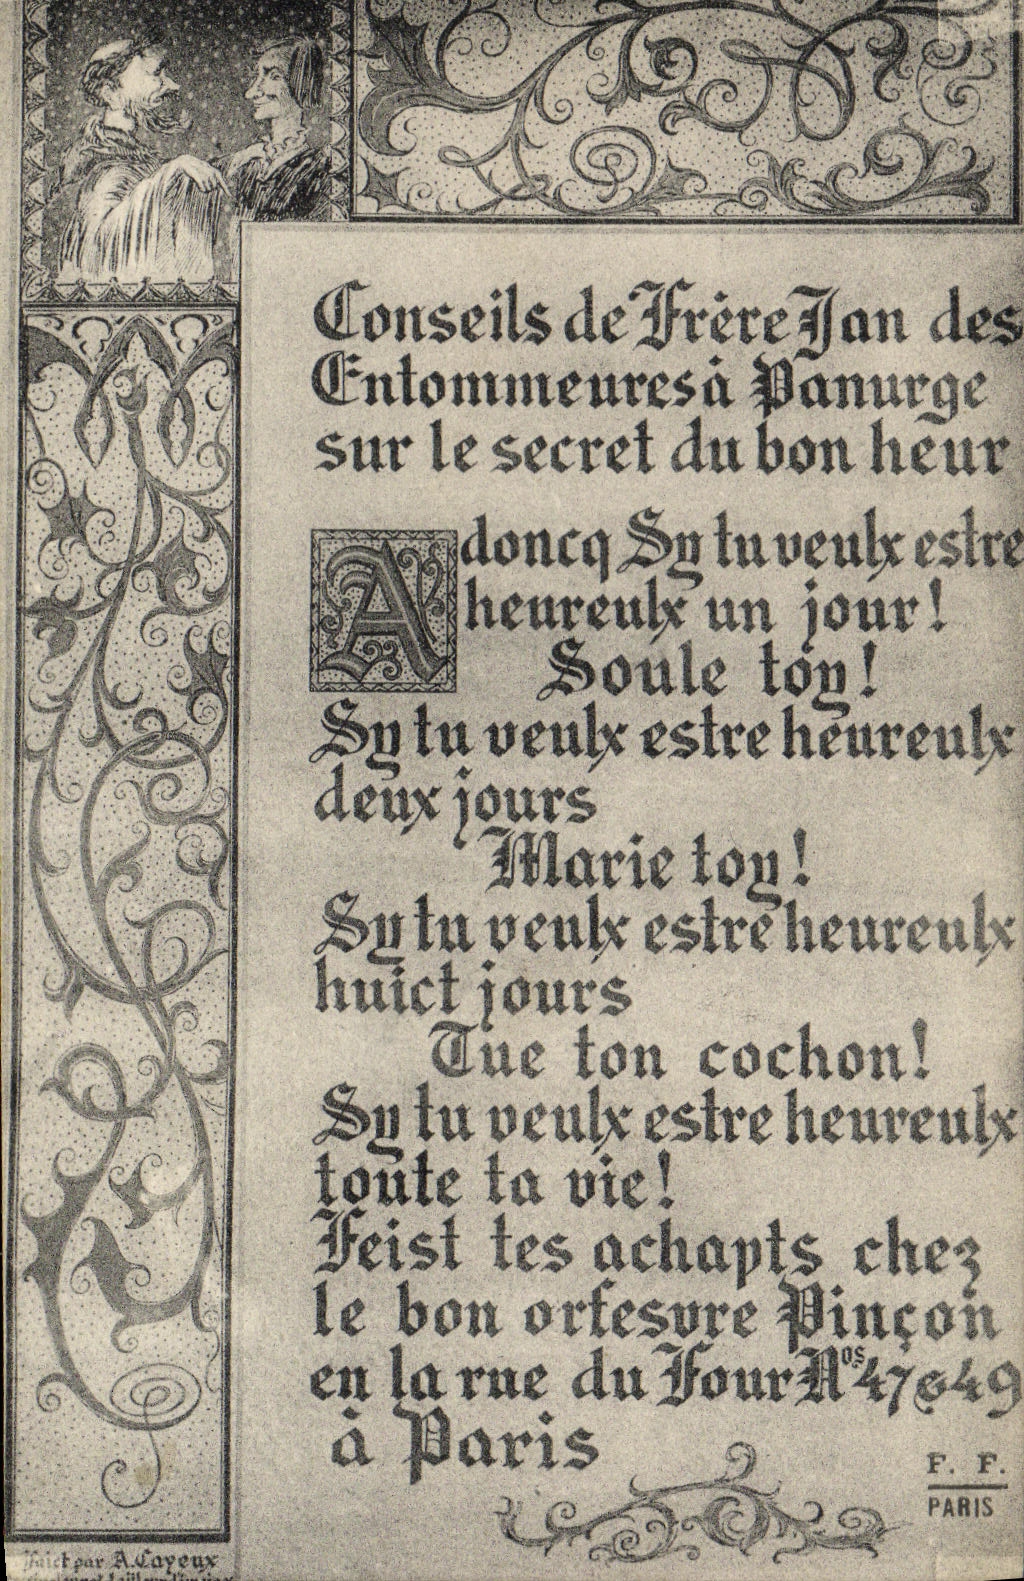 Conseils de Frère Jan des
Entommeures à Panurge
sur le secret du bon heur
Adoncq Sy tu veulx estre
heureulx un jour!
Soule toy!
Sy tu veulx estre heureulx
deux jours
Marie toy!
Sy tu veulx estre heureulx
huict jours
Tue ton cochon!
Sy tu veulx estre heureulx
toute ta vie!
Feist tes achapts chez
le bon orfesvre Pinçon
en la rue du Four Nos 47 & 49
à Paris
F. F.
PARIS
Faict par A. Cayeux